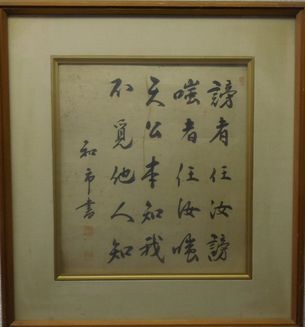 謗者任汝謗
嗤者任汝嗤
天公本知我
不覓他人知
和市書